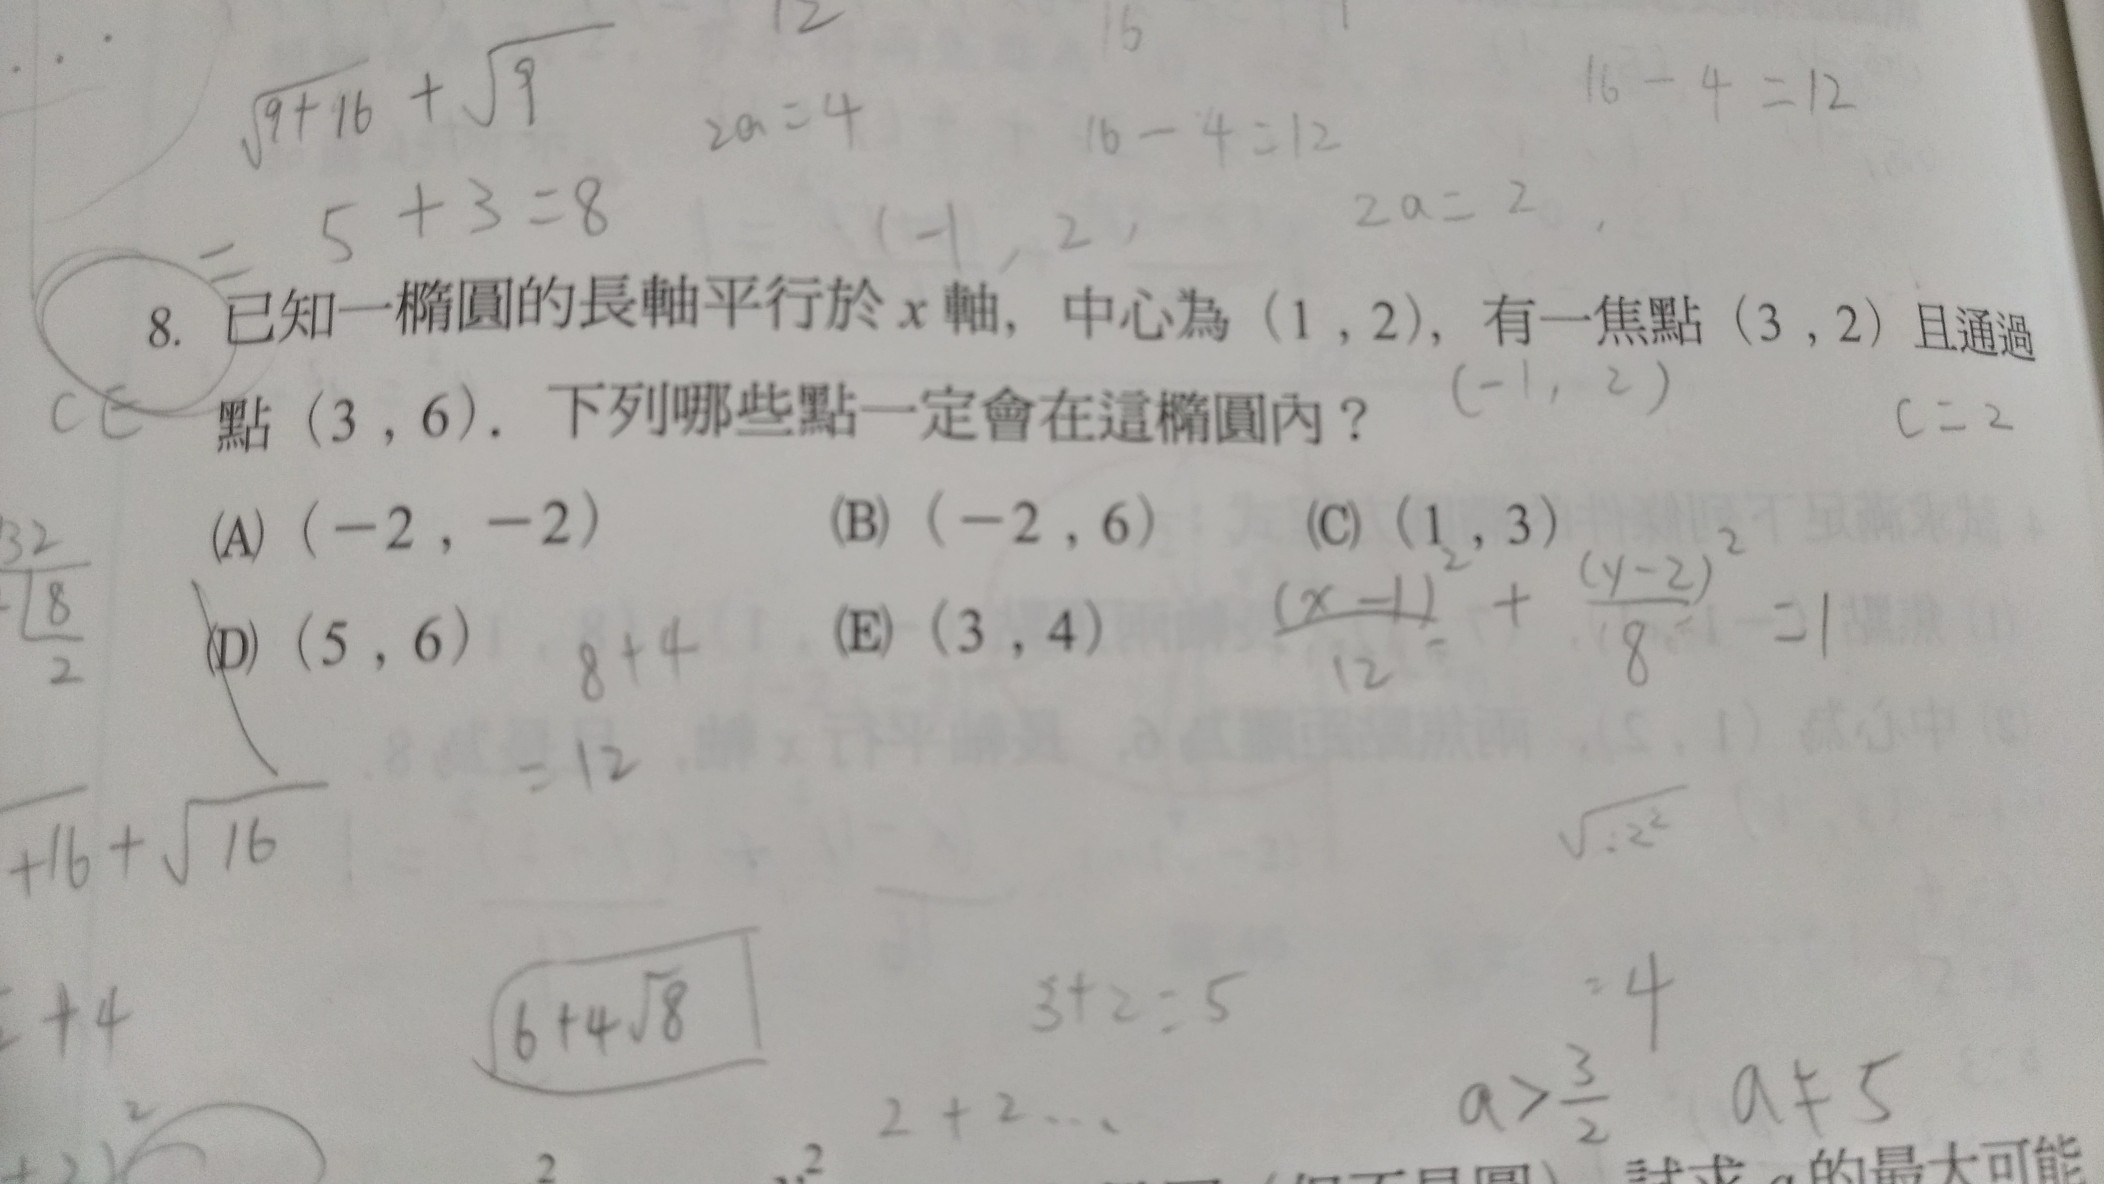 12
16
√9+16 + √9
2a=4
16-4=12
16-4=12
= 5+3=8
(-1, 2,
2a=2
8. 已知一橢圓的長軸平行於 x 軸, 中心為 (1, 2), 有一焦點 (3, 2) 且通過
(-1, 2)
C=2
CE
點 (3, 6). 下列哪些點一定會在這橢圓內?
(A) (-2, -2) (B) (-2, 6) (C) (1, 3)
32
8
2
(x-1)²/12 + (y-2)²/8 =1
(D) (5, 6) (E) (3, 4)
8+4
=12
+16+√16
+4
6+4√8
3+2=5
=4
2+2...
a>3/2 a≠5
2
2
試求 a 的最大可能